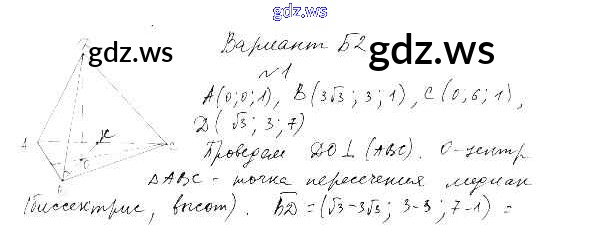 gdz.ws
Вариант Б2
gdz.ws
gdz.ws
№1
A(0;0;1), B(3√3; 3; 1), C(0; 6; 1),
D(√3; 3; 7)
Проведем DO⊥(ABC). O-центр
ΔABC - точка пересечения медиан
(биссектрис, высот). BD = (√3-3√3; 3-3; 7-1) =